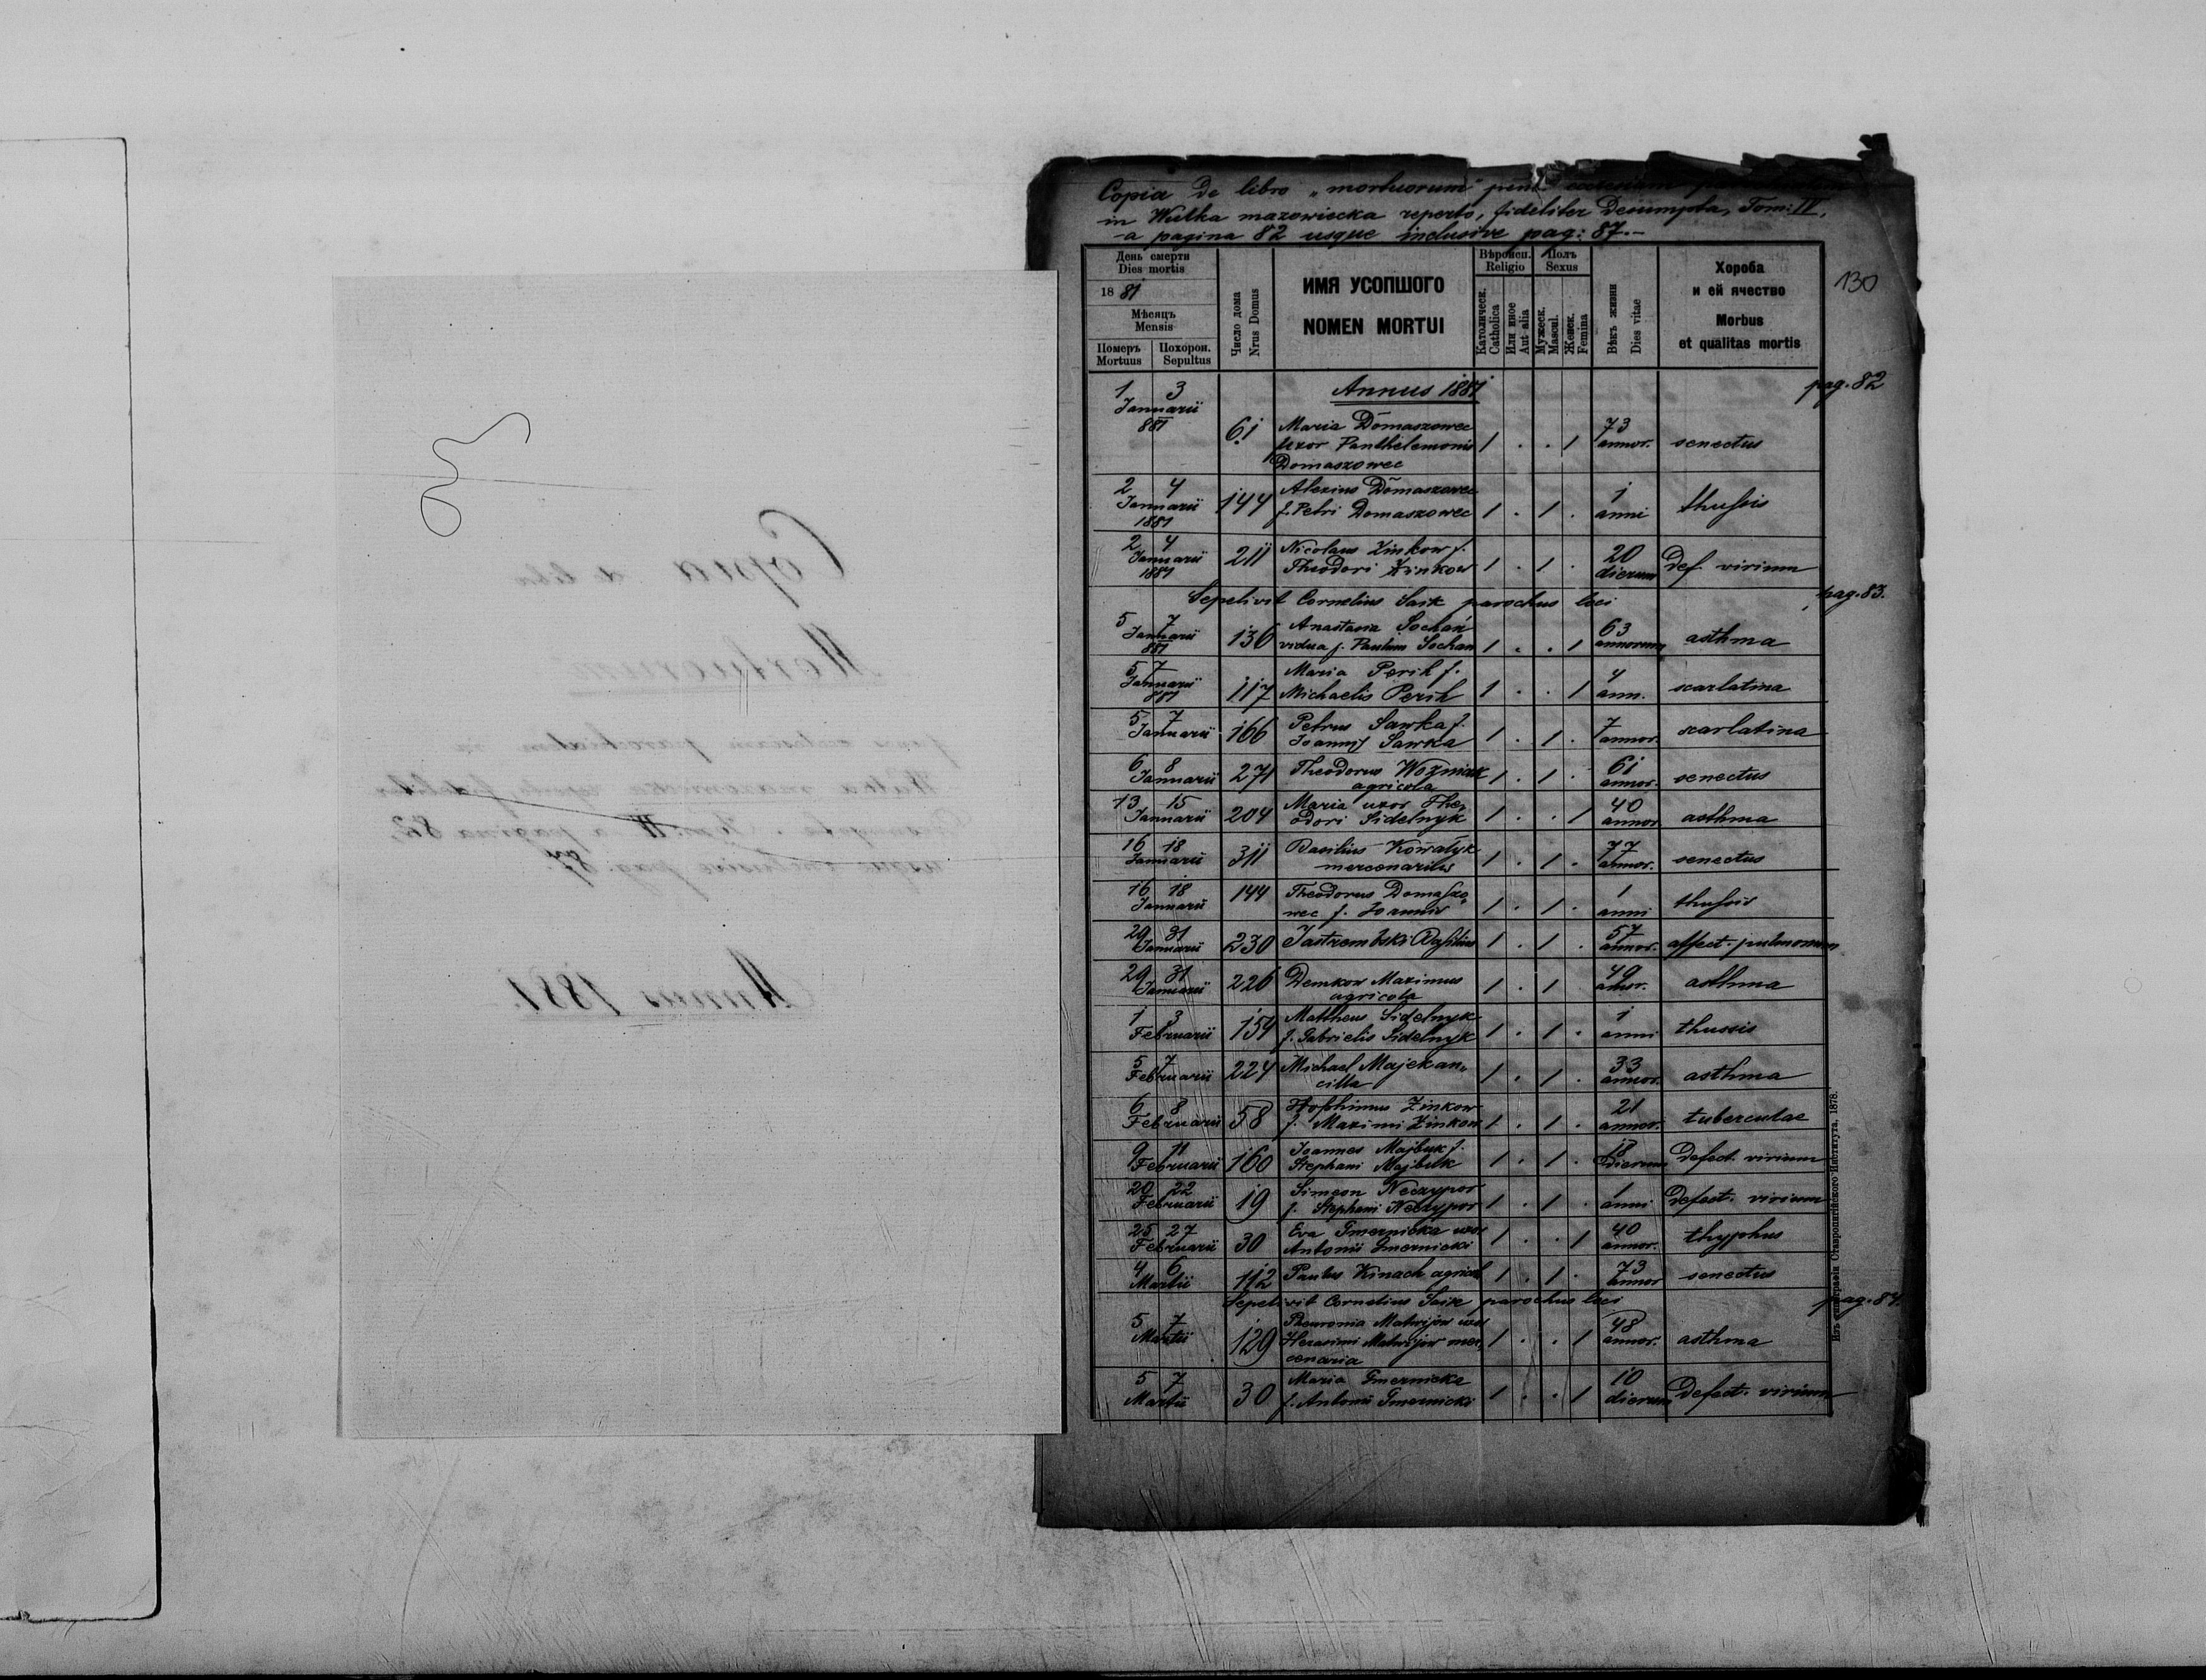 Copia de libro „mortuorum" penes ecclesiam
in Wulka mazowiecka reperto, fideliter desumpta, Tom: IV,
a pagina 82 usque inclusive pag: 87.-
130
День смерти
Dies mortis
18 81
Мѣсяцъ
Mensis
Померъ Mortuus
Похорон. Sepultus
Число дома
Nrus Domus
ИМЯ УСОПШОГО
NOMEN MORTUI
Вѣроисп.
Religio
Католическ.
Catholica
Или иное
Aut alia
Полъ
Sexus
Мужеск.
Mascul.
Женск.
Femina
Вѣкъ жизни
Dies vitae
Хороба
и ей ячество
Morbus
et qualitas mortis
Annus 1881
pag. 82
1 3
Januarii
881
61
Maria Domaszowec
uxor Panthelemonis
Domaszowec
1 . . 1
73
annor.
senectus
2 4
Januarii
1881
144
Alexius Domaszowec
f. Petri Domaszowec
1 . 1 .
1
anni
thussis
2 4
Januarii
1881
211
Nicolaus Zinkow f.
Theodori Zinkow
1 . 1 .
20
dierum
def. virium
Sepelivit Cornelius Saik parochus loci
pag. 83.
5 7
Januarii
881
136
Anastasia Sochan
vidua p. Paulum Sochan
1 . . 1
63
annorum
asthma
5 7
Januarii
881
117
Maria Perih f.
Michaelis Perih
1 . . 1
4
ann.
scarlatina
5 7
Januarii
166
Petrus Sawka f.
Joannis Sawka
1 . 1 .
7
annor.
scarlatina
6 8
Januarii
271
Theodorus Wozniak
agricola
1 . 1 .
61
annor.
senectus
13 15
Januarii
204
Maria uxor The„
odori Sidelnyk
1 . . 1
40
annor
asthma
16 18
Januarii
311
Basilius Kowalyk
mercenarius
1 . 1 .
77
annor.
senectus
16 18
Januarii
144
Theodorus Domaszo„
wec f. Joannis
1 . 1 .
1
anni
thussis
29 31
Januarii
230
Jastrembski Basilius
1 . 1 .
57
annor.
affect. pulmonum
29 31
Januarii
226
Demkow Maximus
agricola
1 . 1
49
annor.
asthma
1 3
Februarii
154
Mattheus Sidelnyk
f. Gabrielis Sidelnyk
1 . 1 .
1
anni
thussis
5 7
Februarii
224
Michael Majek an„
cilla
1 . 1 .
33
annor.
asthma
6 8
Februarii
58
Zinkow
f. Maximi Zinkow
1 . 1 .
21
annor.
tuberculae
9 11
Februarii
160
Joannes Majbuk f.
Stephani Majbuk
1 . 1 .
18
dierum
defect. virium
20 22
Februarii
19
Simeon Neczypor
f. Stephani Neczypor
1 . 1 .
1
anni
defect. virium
25 27
Februarii
30
Eva Tmernicka uxor
Antonii Tmernicki
1 . . 1
40
annor.
thyphus
4 6
Martii
112
Paulus Kinach agricol
1 . 1 .
73
annor
senectus
Sepelivit Cornelius Saik parochus loci
pag. 84.
5 7
Martii
129
Matwijow uxor
Herasimi Matwijow mer„
cenaria
1 . . 1
48
annor.
asthma
5 7
Martii
30
Maria Tmernicka
f. Antonii Tmernicki
1 . . 1
10
dierum
defect. virium
Изъ типографіи Ставропигійского Института, 1878.
Copia de libro
Mortuorum
penes ecclesiam parochialem in
Wulka mazowiecka reperto, fideliter
desumpta. Tom: IV a pagina 82
usque inclusive pag: 87.
Annus 1881.